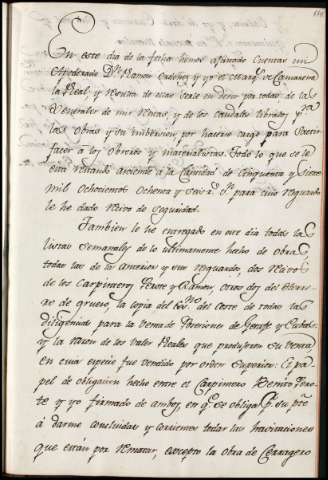 En este dia de la fecha hemos ajustado Cuentas mi
Apoderado Dn. Ramon y yo el Marqs. de Camarena
la Real y
Generales de mis Rentas, y de los Caudales librados pa.
las Obras y su inversion por haverse cargo para Satis-
facer á los Obreros y materialistas. Todo lo que se le
está restando asciende á la Cantidad de Cinquenta y Siete
mil Ochocientos Ochenta y seis rs. Vn. para cuio resguardo
le he dado Recivo de seguridad.
Tambien le he entregado en este dia todas las
listas Semanales de lo ultimamente hecho de obras,
todas las de la anterior y sus resguardos, dos Recivos
de los Carpinteros Perote y Ramon, otros dos del
de grueso, la copia del del Corte de todas las
diligencias para la venta de Porciones de
y la Razon de los Vales Reales que produxeron su Venta
en cuia especie fue vendido por orden Superior: El pa-
pel de obligacion hecho entre el Carpintero Benito Pero-
te y yo firmado de ambos, en qe. se obliga Pr. su pte.
á darme concluidas y corrientes todas las havitaciones
que están por rematar, excepto la obra de Cerragero